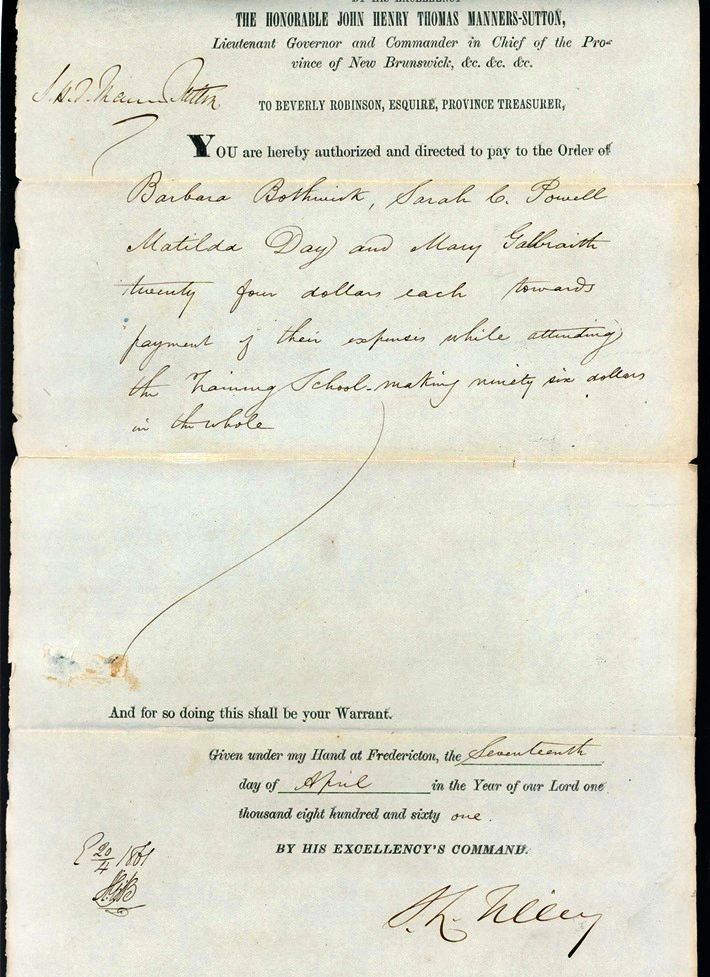 BY HIS EXCELLENCY
THE HONORABLE JOHN HENRY THOMAS MANNERS-SUTTON,
Lieutenant Governor and Commander in Chief of the Pro-
vince of New Brunswick, &c. &c. &c.
J. H. T. Manners Sutton
TO BEVERLY ROBINSON, ESQUIRE, PROVINCE TREASURER,
YOU are hereby authorized and directed to pay to the Order of
Barbara Bothwick, Sarah C. Powell
Matilda Day and Mary Galbraith
twenty four dollars each towards
payment of their expenses while attending
the Training School - making ninety six dollars
in the whole
And for so doing this shall be your Warrant.
Given under my Hand at Fredericton, the Seventeenth
day of April in the Year of our Lord one
thousand eight hundred and sixty one.
BY HIS EXCELLENCY'S COMMAND.
20/4 1861
S. L. Tilley